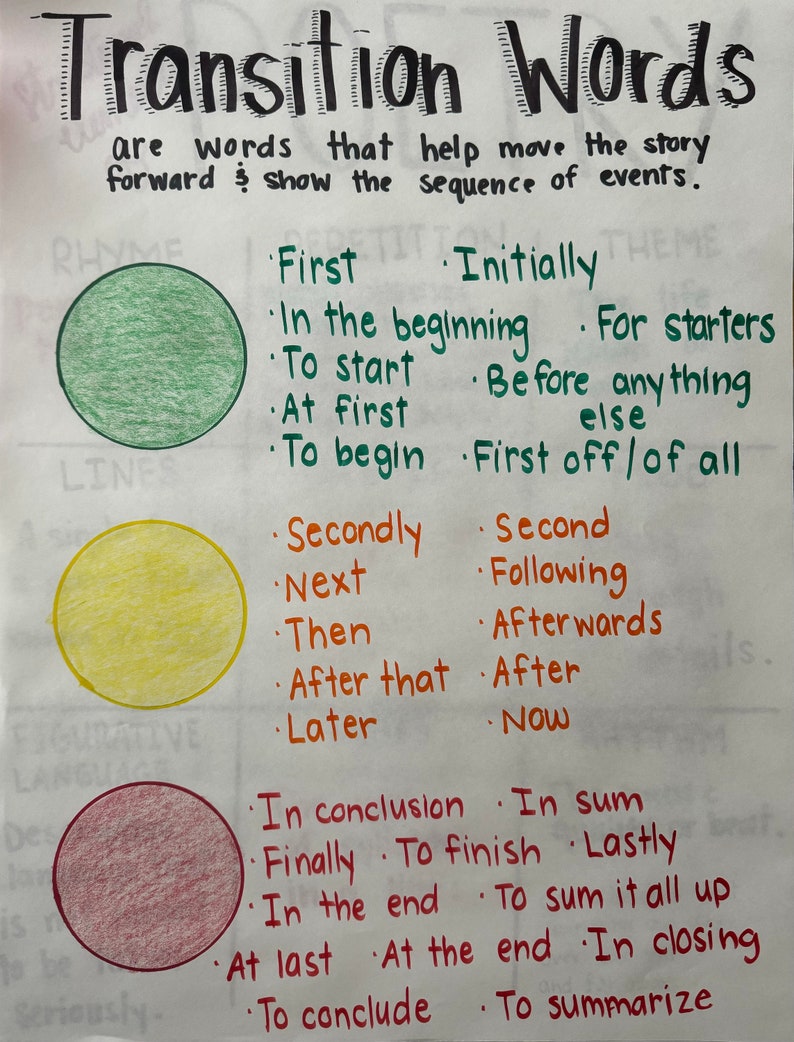 Transition Words
are words that help move the story
forward & show the sequence of events.
RHYME REPETITION THEME
· First · Initially
· In the beginning · For starters
· To start · Before anything
else
· At first
· To begin · First off/of all
LINES
· Secondly · Second
· Next · Following
· Then · Afterwards
· After that · After
· Later · Now
FIGURATIVE
LANGUAGE
RHYTHM
· In conclusion · In sum
· Finally · To finish · Lastly
· In the end · To sum it all up
· At last · At the end · In closing
· To conclude · To summarize
seriously.